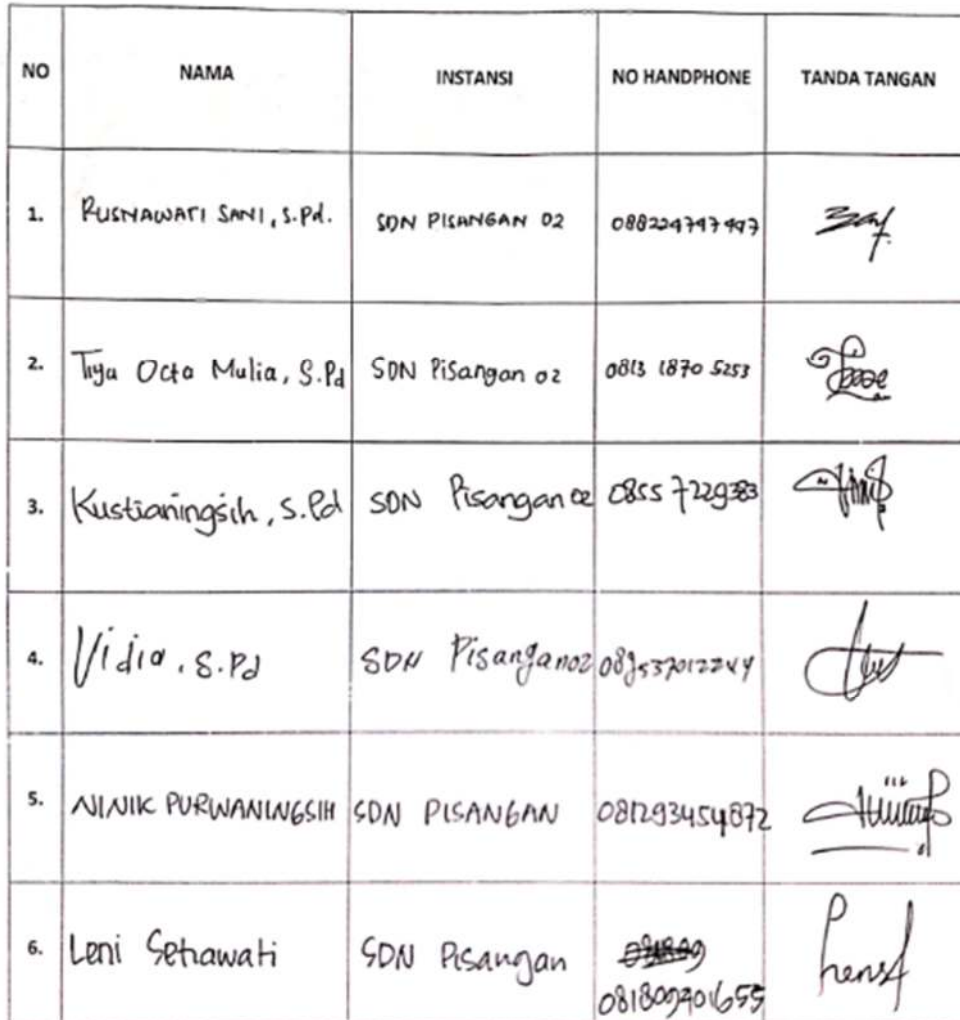 NO NAMA INSTANSI NO HANDPHONE TANDA TANGAN
1. RUSNAWATI SANI, S.Pd. SDN PISANGAN 02 088224747497
2. Tiya Octa Mulia, S.Pd SDN Pisangan 02 0813 1870 5253
3. Kustianingsih, S.Pd SDN Pisangan 02 0855 7229383
4. Vidia, S.Pd SDN Pisangan 02
5. NINIK PURWANINGSIH SDN PISANGAN 081293454872
6. Leni Setiawati SDN Pisangan